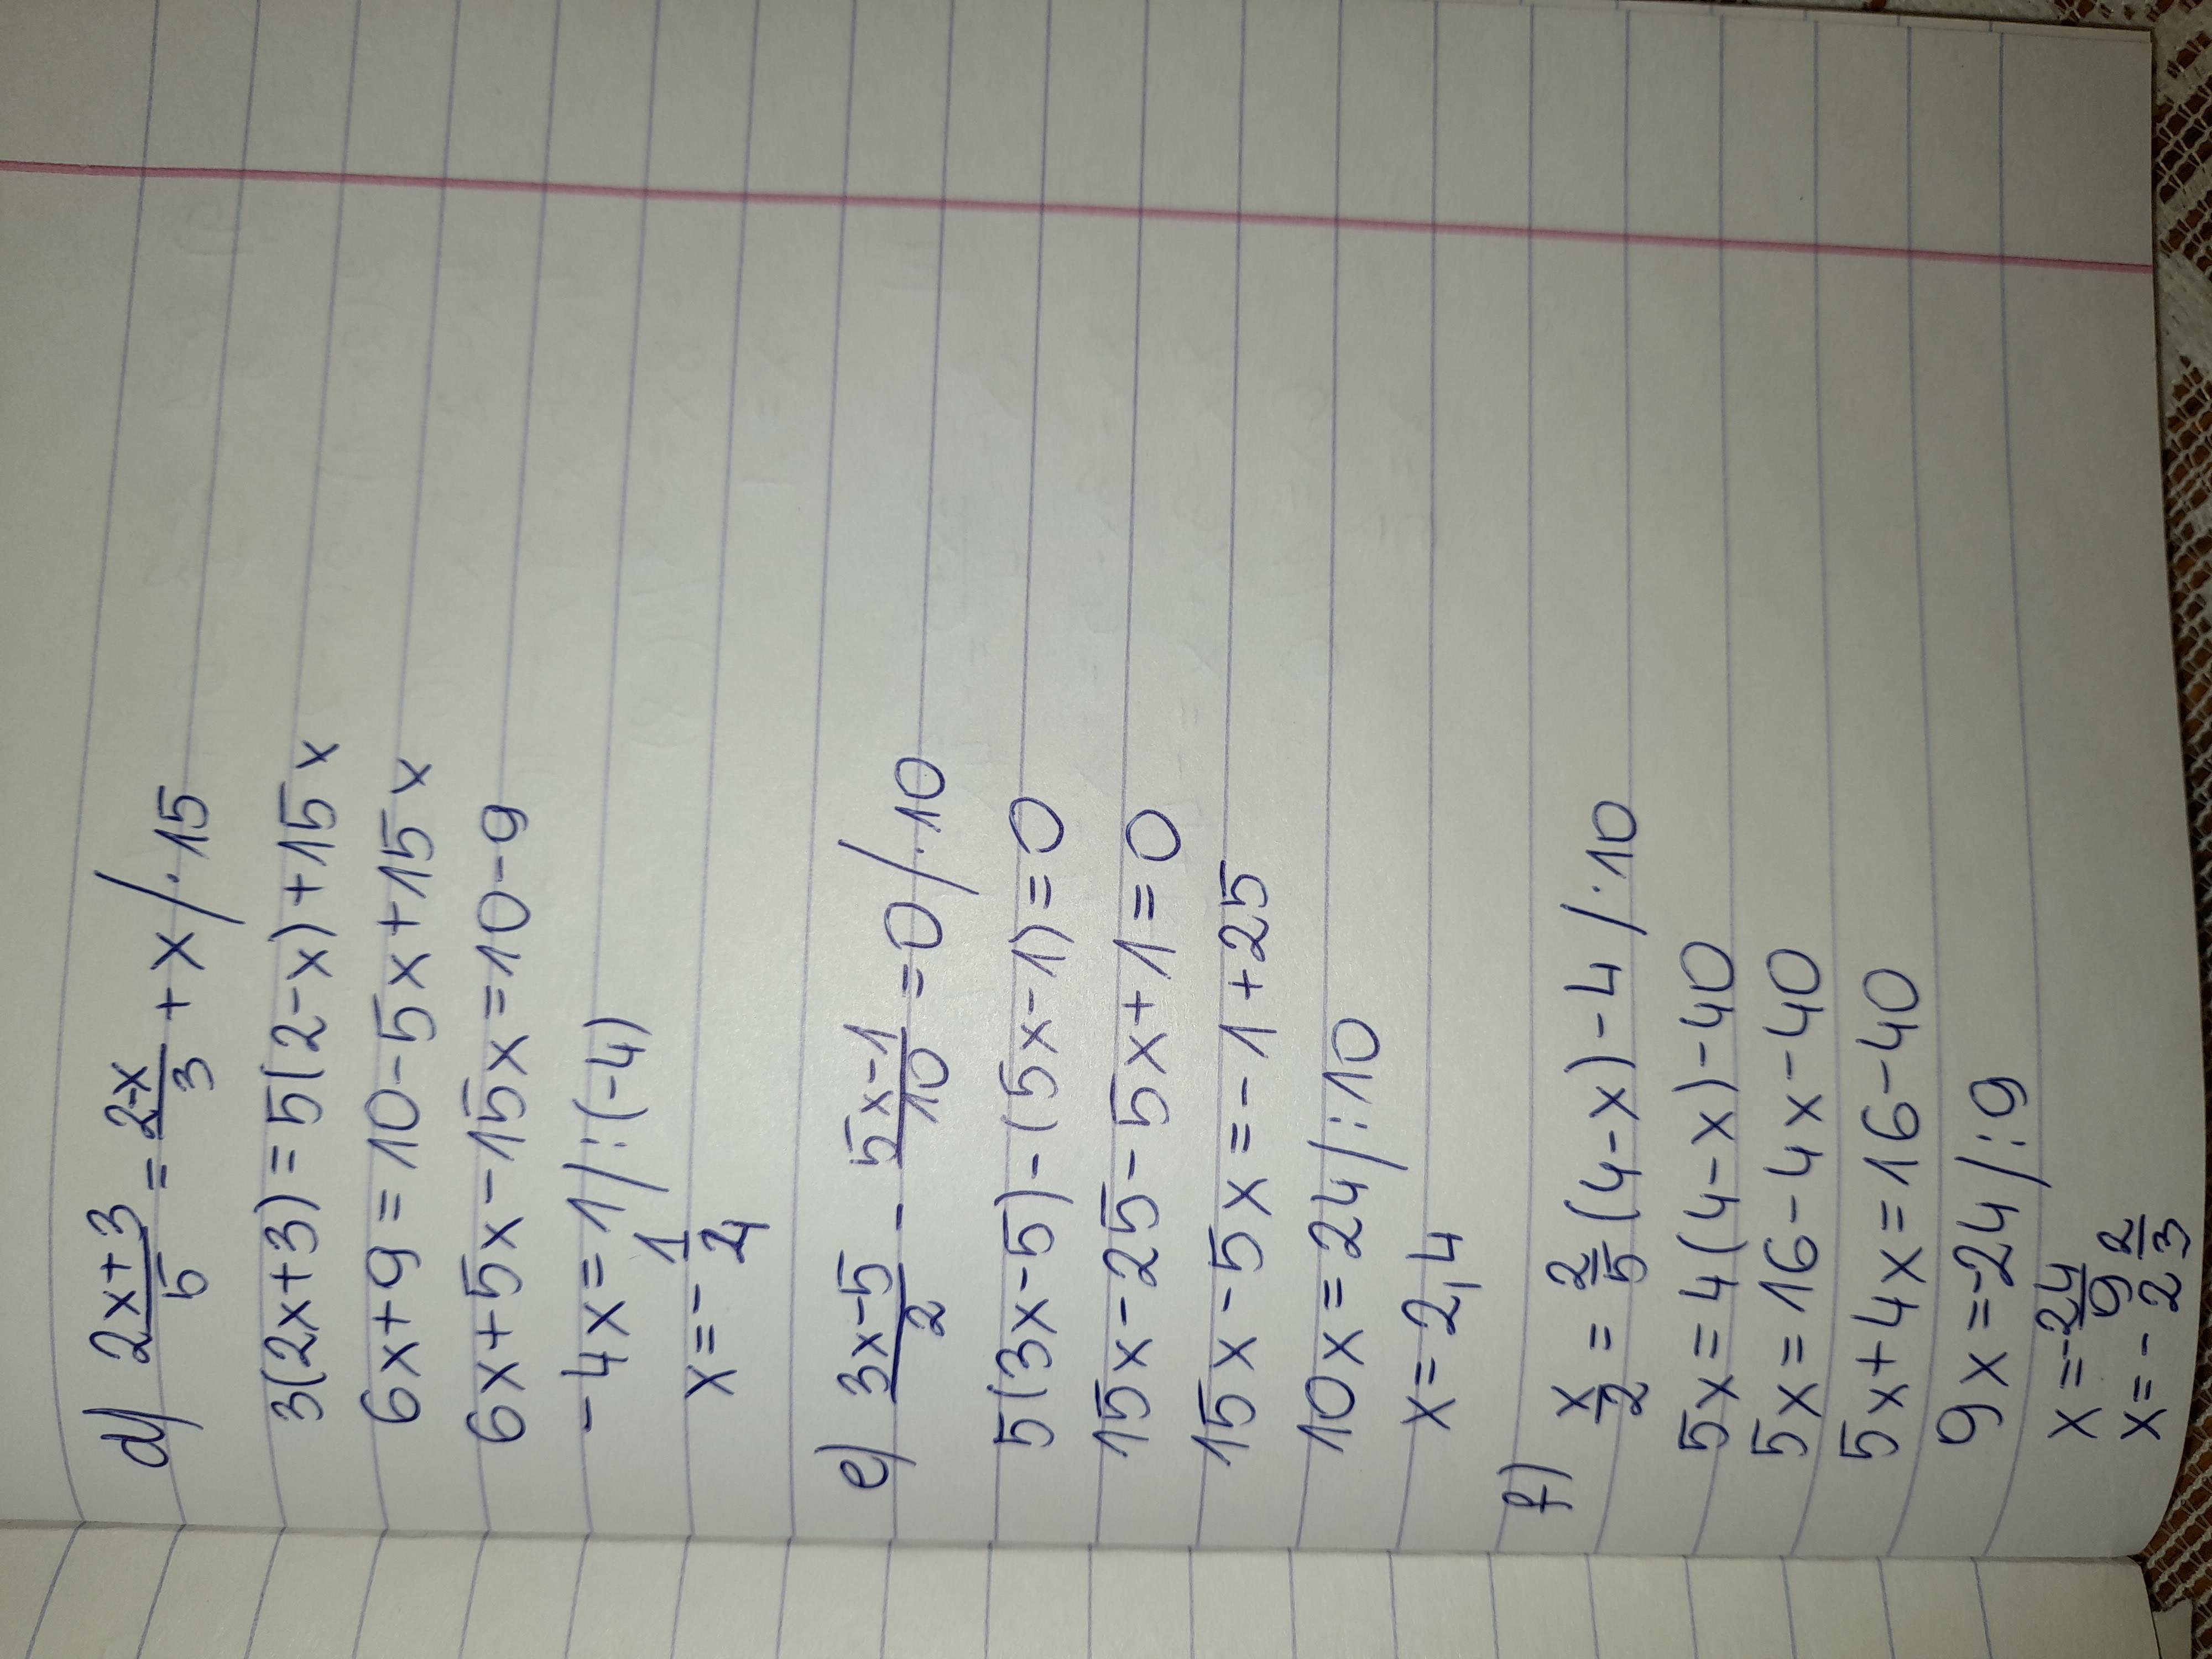 d) \frac{2x+3}{5} = \frac{2-x}{3} + x /·15
3(2x+3) = 5(2-x)+15x
6x+9 = 10-5x+15x
6x+5x-15x = 10-9
-4x = 1 /:(-4)
x = -\frac{1}{4}
e) \frac{3x-5}{2} - \frac{5x-1}{10} = 0 /·10
5(3x-5)-(5x-1) = 0
15x-25-5x+1 = 0
15x-5x = -1+25
10x = 24 /:10
x = 2,4
f) \frac{x}{2} = \frac{2}{5}(4-x)-4 /·10
5x = 4(4-x)-40
5x = 16-4x-40
5x+4x = 16-40
9x = -24 /:9
x = -\frac{24}{9}
x = -2\frac{2}{3}